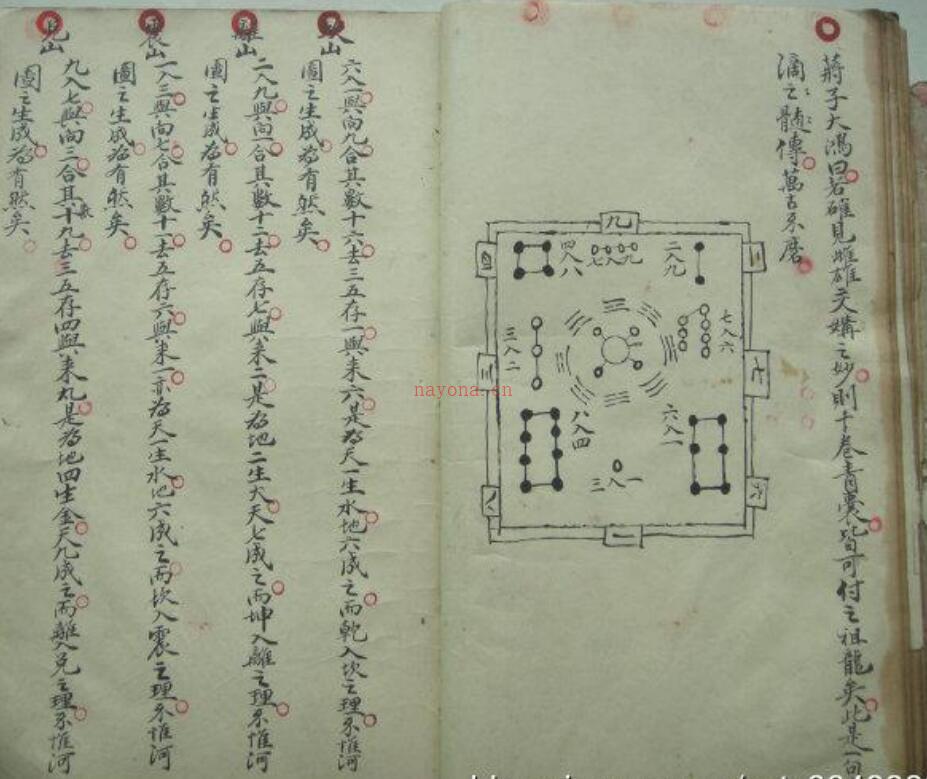 蔣子大鴻曰若確見雌雄交媾之妙則十卷青囊皆可付之祖龍矣此是一句
滴之髓傳萬古不磨
九
四入八
七入九
二入九
三入二
七入六
八入四
六入一
三入一
一
坎山
六入一與向九合其數十六去三五存一與來六是為天一生水地六成之而乾入坎之理不惟河
圖之生成為有然矣
離山
二入九與向一合其數十二去五存七與來二是為地二生火天七成之而坤入離之理不惟河
圖之生成為有然矣
震山
一入三與向七合其數十一去五存六與來一亦為天一生水地六成之而坎入震之理不惟河
圖之生成為有然矣
兌山
九入七與向三合其十九去三五存四與來九是為地四生金天九成之而離入兌之理不惟河
圖之生成為有然矣
nayona.cn